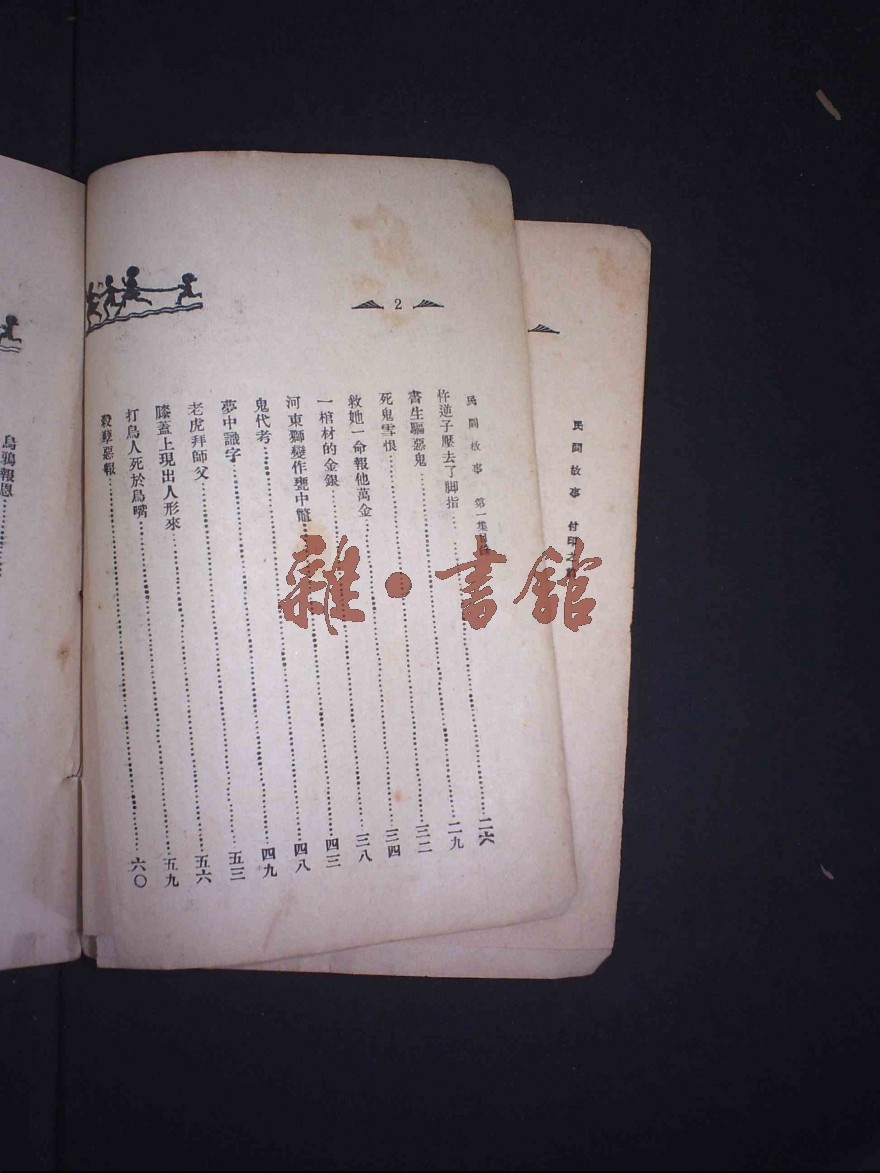 民間故事 付印之
2
民間故事 第一集目
忤逆子壓去了脚指……二六
書生驅惡鬼……二九
死鬼雪恨……三二
救她一命報他萬金……三四
一棺材的金銀……三八
河東獅變作甕中鼈……四三
鬼代考……四八
夢中識字……四九
老虎拜師父……五三
膝蓋上現出人形來……五六
打鳥人死於鳥嘴……五九
殺孽惡報……六〇
烏鴉報恩……
雜·書館